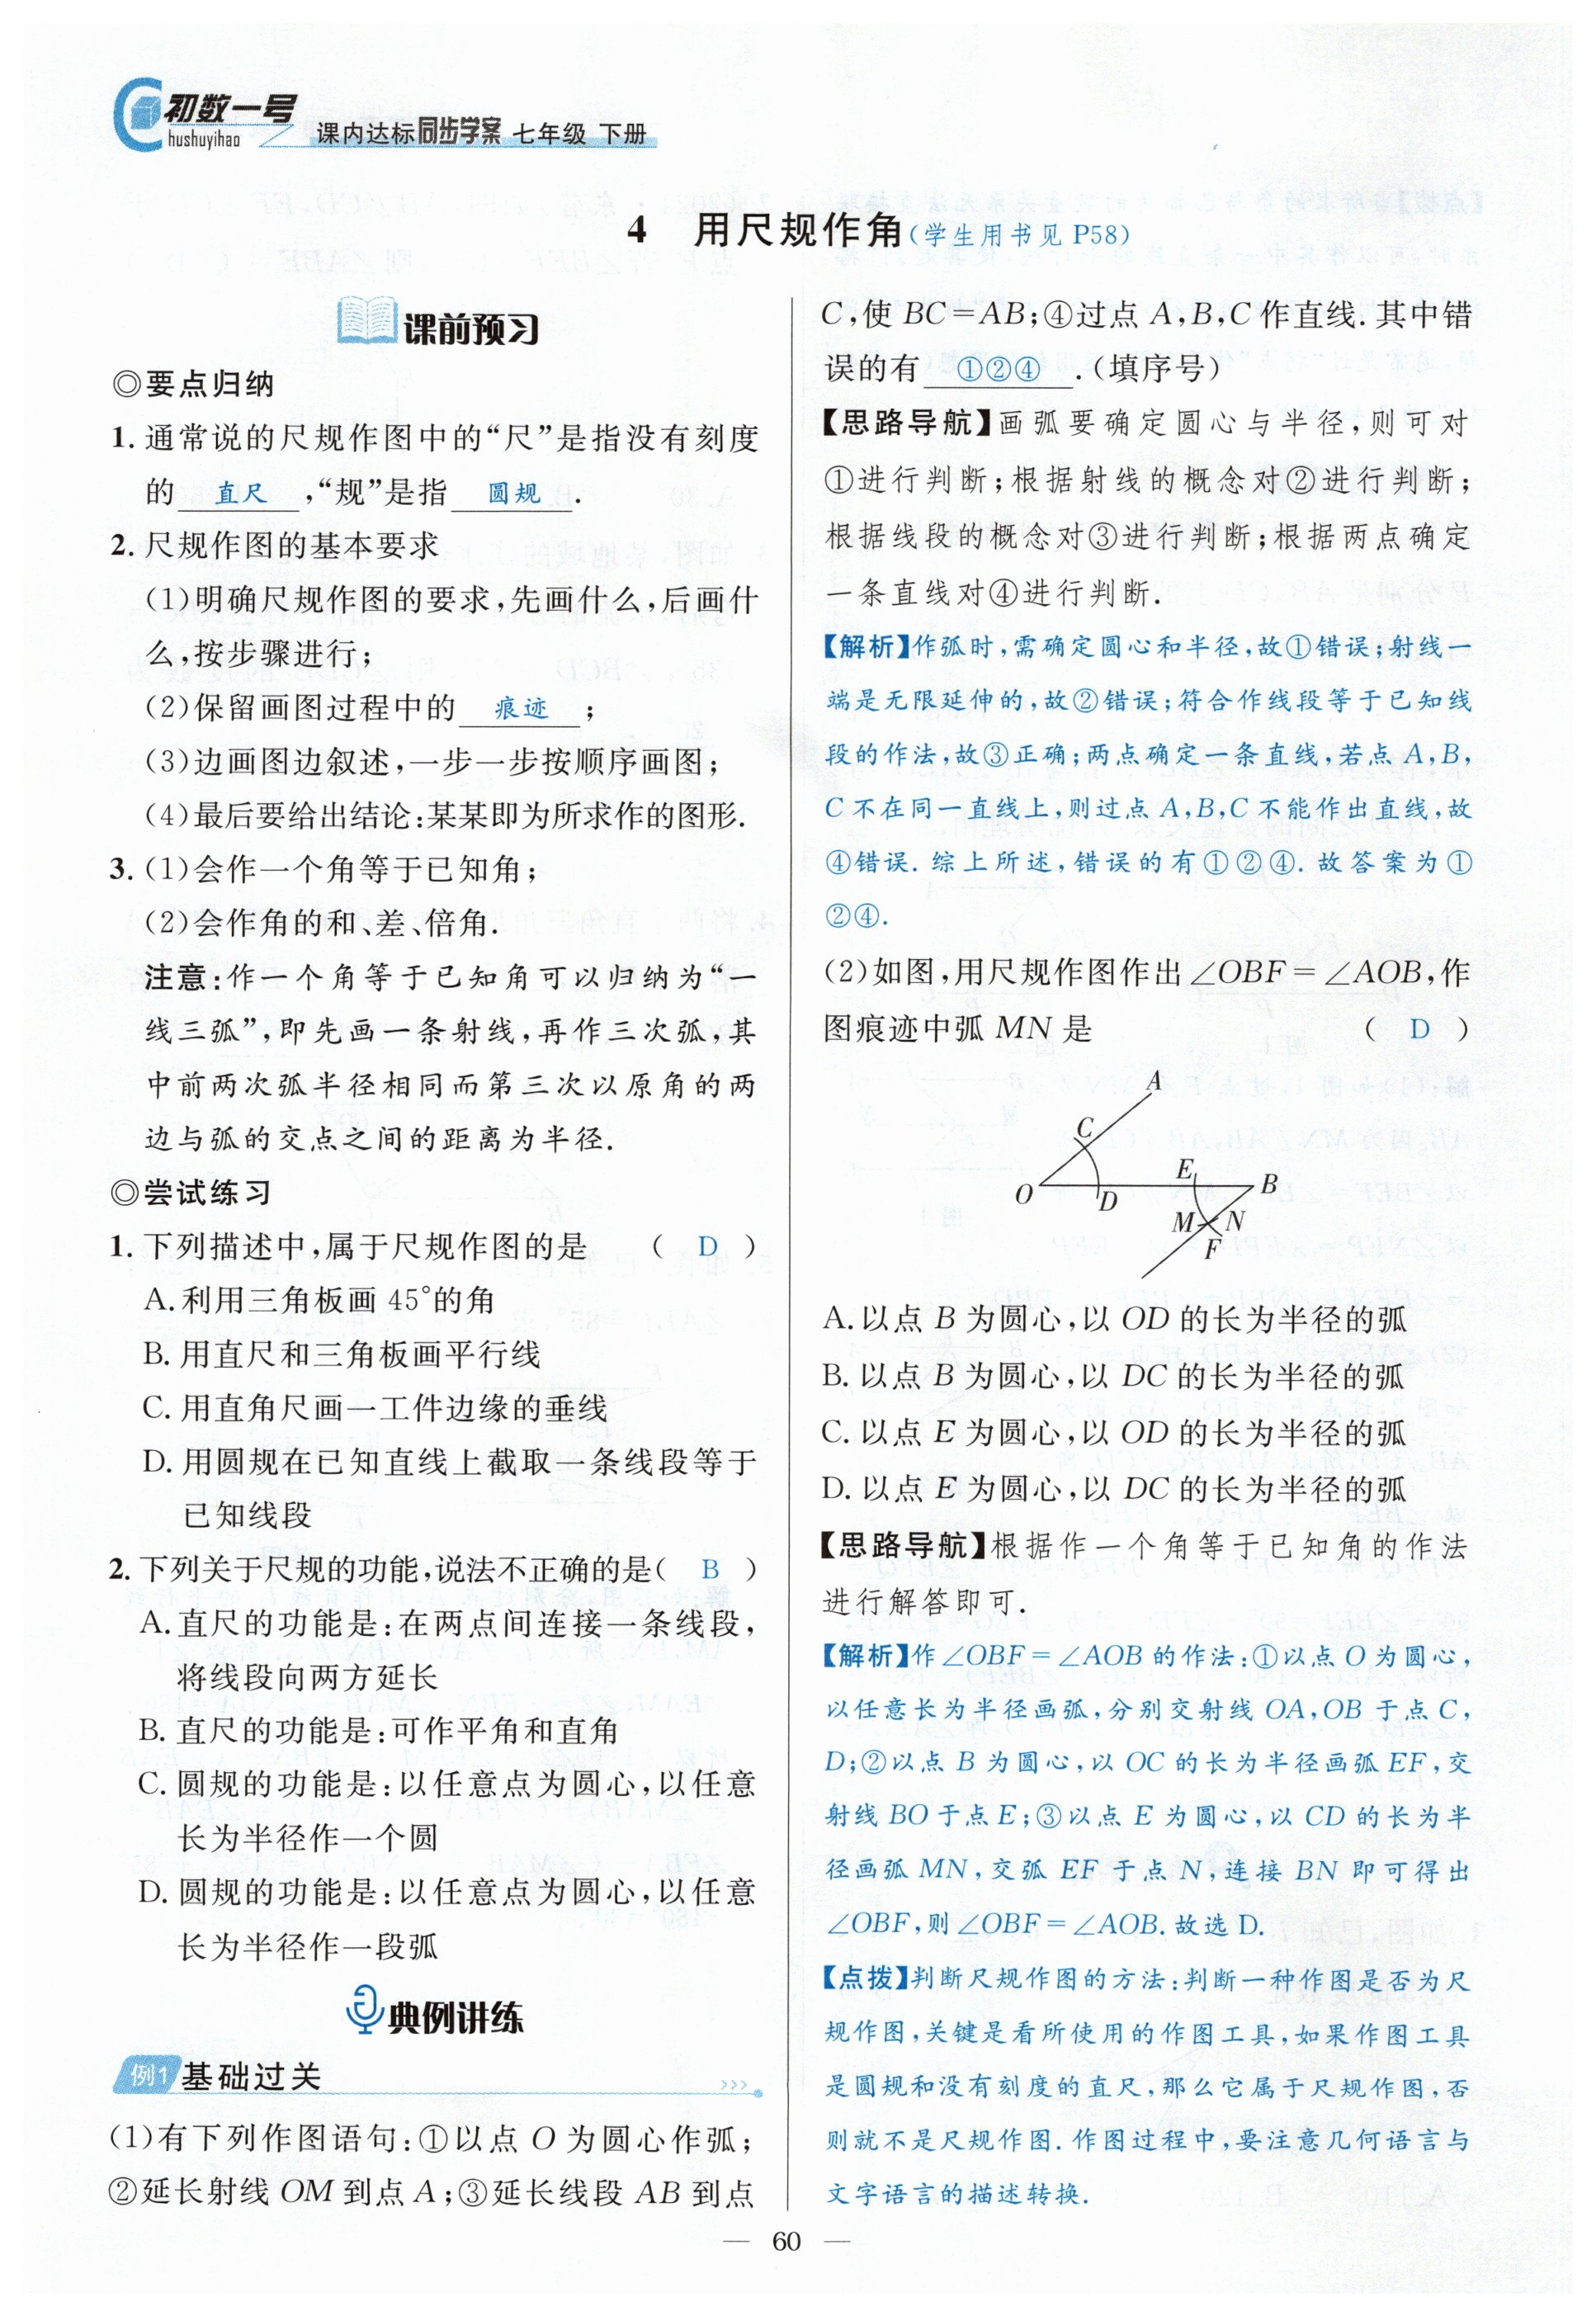 初数一号
hushuyihao
课内达标同步学案 七年级 下册
4 用尺规作角(学生用书见 P58)
课前预习
◎要点归纳
1. 通常说的尺规作图中的“尺”是指没有刻度
的 直尺 ,“规”是指 圆规 .
2. 尺规作图的基本要求
(1)明确尺规作图的要求,先画什么,后画什
么,按步骤进行;
(2)保留画图过程中的 痕迹 ;
(3)边画图边叙述,一步一步按顺序画图;
(4)最后要给出结论:某某即为所求作的图形.
3. (1)会作一个角等于已知角;
(2)会作角的和、差、倍角.
注意:作一个角等于已知角可以归纳为“一
线三弧”,即先画一条射线,再作三次弧,其
中前两次弧半径相同而第三次以原角的两
边与弧的交点之间的距离为半径.
◎尝试练习
1. 下列描述中,属于尺规作图的是 ( D )
A. 利用三角板画 45°的角
B. 用直尺和三角板画平行线
C. 用直角尺画一工件边缘的垂线
D. 用圆规在已知直线上截取一条线段等于
已知线段
2. 下列关于尺规的功能,说法不正确的是( B )
A. 直尺的功能是:在两点间连接一条线段,
将线段向两方延长
B. 直尺的功能是:可作平角和直角
C. 圆规的功能是:以任意点为圆心,以任意
长为半径作一个圆
D. 圆规的功能是:以任意点为圆心,以任意
长为半径作一段弧
典例讲练
例1 基础过关
(1)有下列作图语句:①以点 O 为圆心作弧;
②延长射线 OM 到点 A;③延长线段 AB 到点
C,使 BC=AB;④过点 A,B,C 作直线. 其中错
误的有 ①②④ .(填序号)
【思路导航】画弧要确定圆心与半径,则可对
①进行判断;根据射线的概念对②进行判断;
根据线段的概念对③进行判断;根据两点确定
一条直线对④进行判断.
【解析】作弧时,需确定圆心和半径,故①错误;射线一
端是无限延伸的,故②错误;符合作线段等于已知线
段的作法,故③正确;两点确定一条直线,若点 A,B,
C 不在同一直线上,则过点 A,B,C 不能作出直线,故
④错误. 综上所述,错误的有①②④. 故答案为①
②④.
(2)如图,用尺规作图作出∠OBF=∠AOB,作
图痕迹中弧 MN 是 ( D )
A
C
O
D
E
B
M
N
F
A. 以点 B 为圆心,以 OD 的长为半径的弧
B. 以点 B 为圆心,以 DC 的长为半径的弧
C. 以点 E 为圆心,以 OD 的长为半径的弧
D. 以点 E 为圆心,以 DC 的长为半径的弧
【思路导航】根据作一个角等于已知角的作法
进行解答即可.
【解析】作∠OBF=∠AOB 的作法:①以点 O 为圆心,
以任意长为半径画弧,分别交射线 OA,OB 于点 C,
D;②以点 B 为圆心,以 OC 的长为半径画弧 EF,交
射线 BO 于点 E;③以点 E 为圆心,以 CD 的长为半
径画弧 MN,交弧 EF 于点 N,连接 BN 即可得出
∠OBF,则∠OBF=∠AOB. 故选 D.
【点拨】判断尺规作图的方法:判断一种作图是否为尺
规作图,关键是看所使用的作图工具,如果作图工具
是圆规和没有刻度的直尺,那么它属于尺规作图,否
则就不是尺规作图. 作图过程中,要注意几何语言与
文字语言的描述转换.
— 60 —